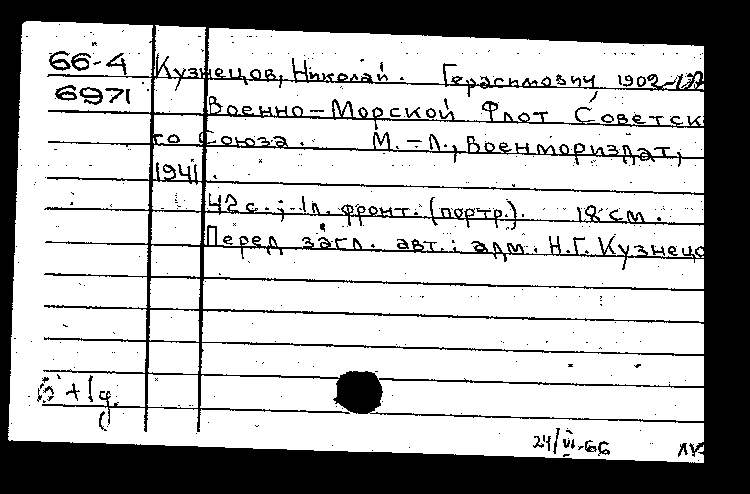 66-4 Кузнецов, Николай. Герасимович, 1902-
6971 Военно-Морской Флот Советск
го Союза. М.-Л., Военмориздат,
1941.
42 с.; 1л. фронт. (портр.). 18 см.
Перед загл. авт.: адм. Н.Г. Кузнецо
24/VI-66